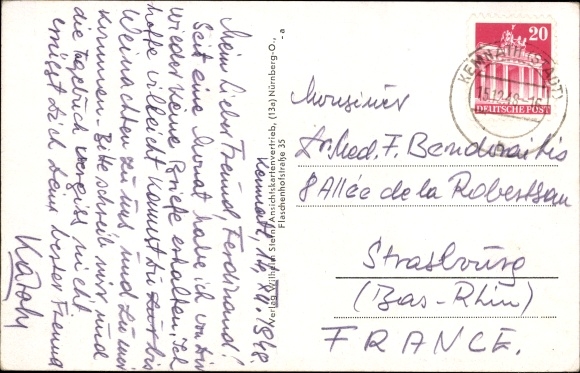 Kemnath, 14. XII. 1948
Mein lieber Freund, Ferdinand!
Seit eine Monat habe ich von dir
wieder keine Briefe erhalten. Ich
hoffe vielleicht kommst du zur bis
Weinachten zu uns, und zu mir
kommen. Bitte schreib mir und
die Tagebuch vergiss nicht
grüsst dich dein bester Freund
Verlag Wilhelm Stein, Ansichtskartenvertrieb, (13a) Nürnberg-O.,
Flaschenhofstraße 35
-a
20
DEUTSCHE POST
KEMNATH (STADT)
15.12.48
Monsieur
Dr. Med. F.
8 Allée de la Robertsau
Strasbourg
(Bas-Rhin)
FRANCE.